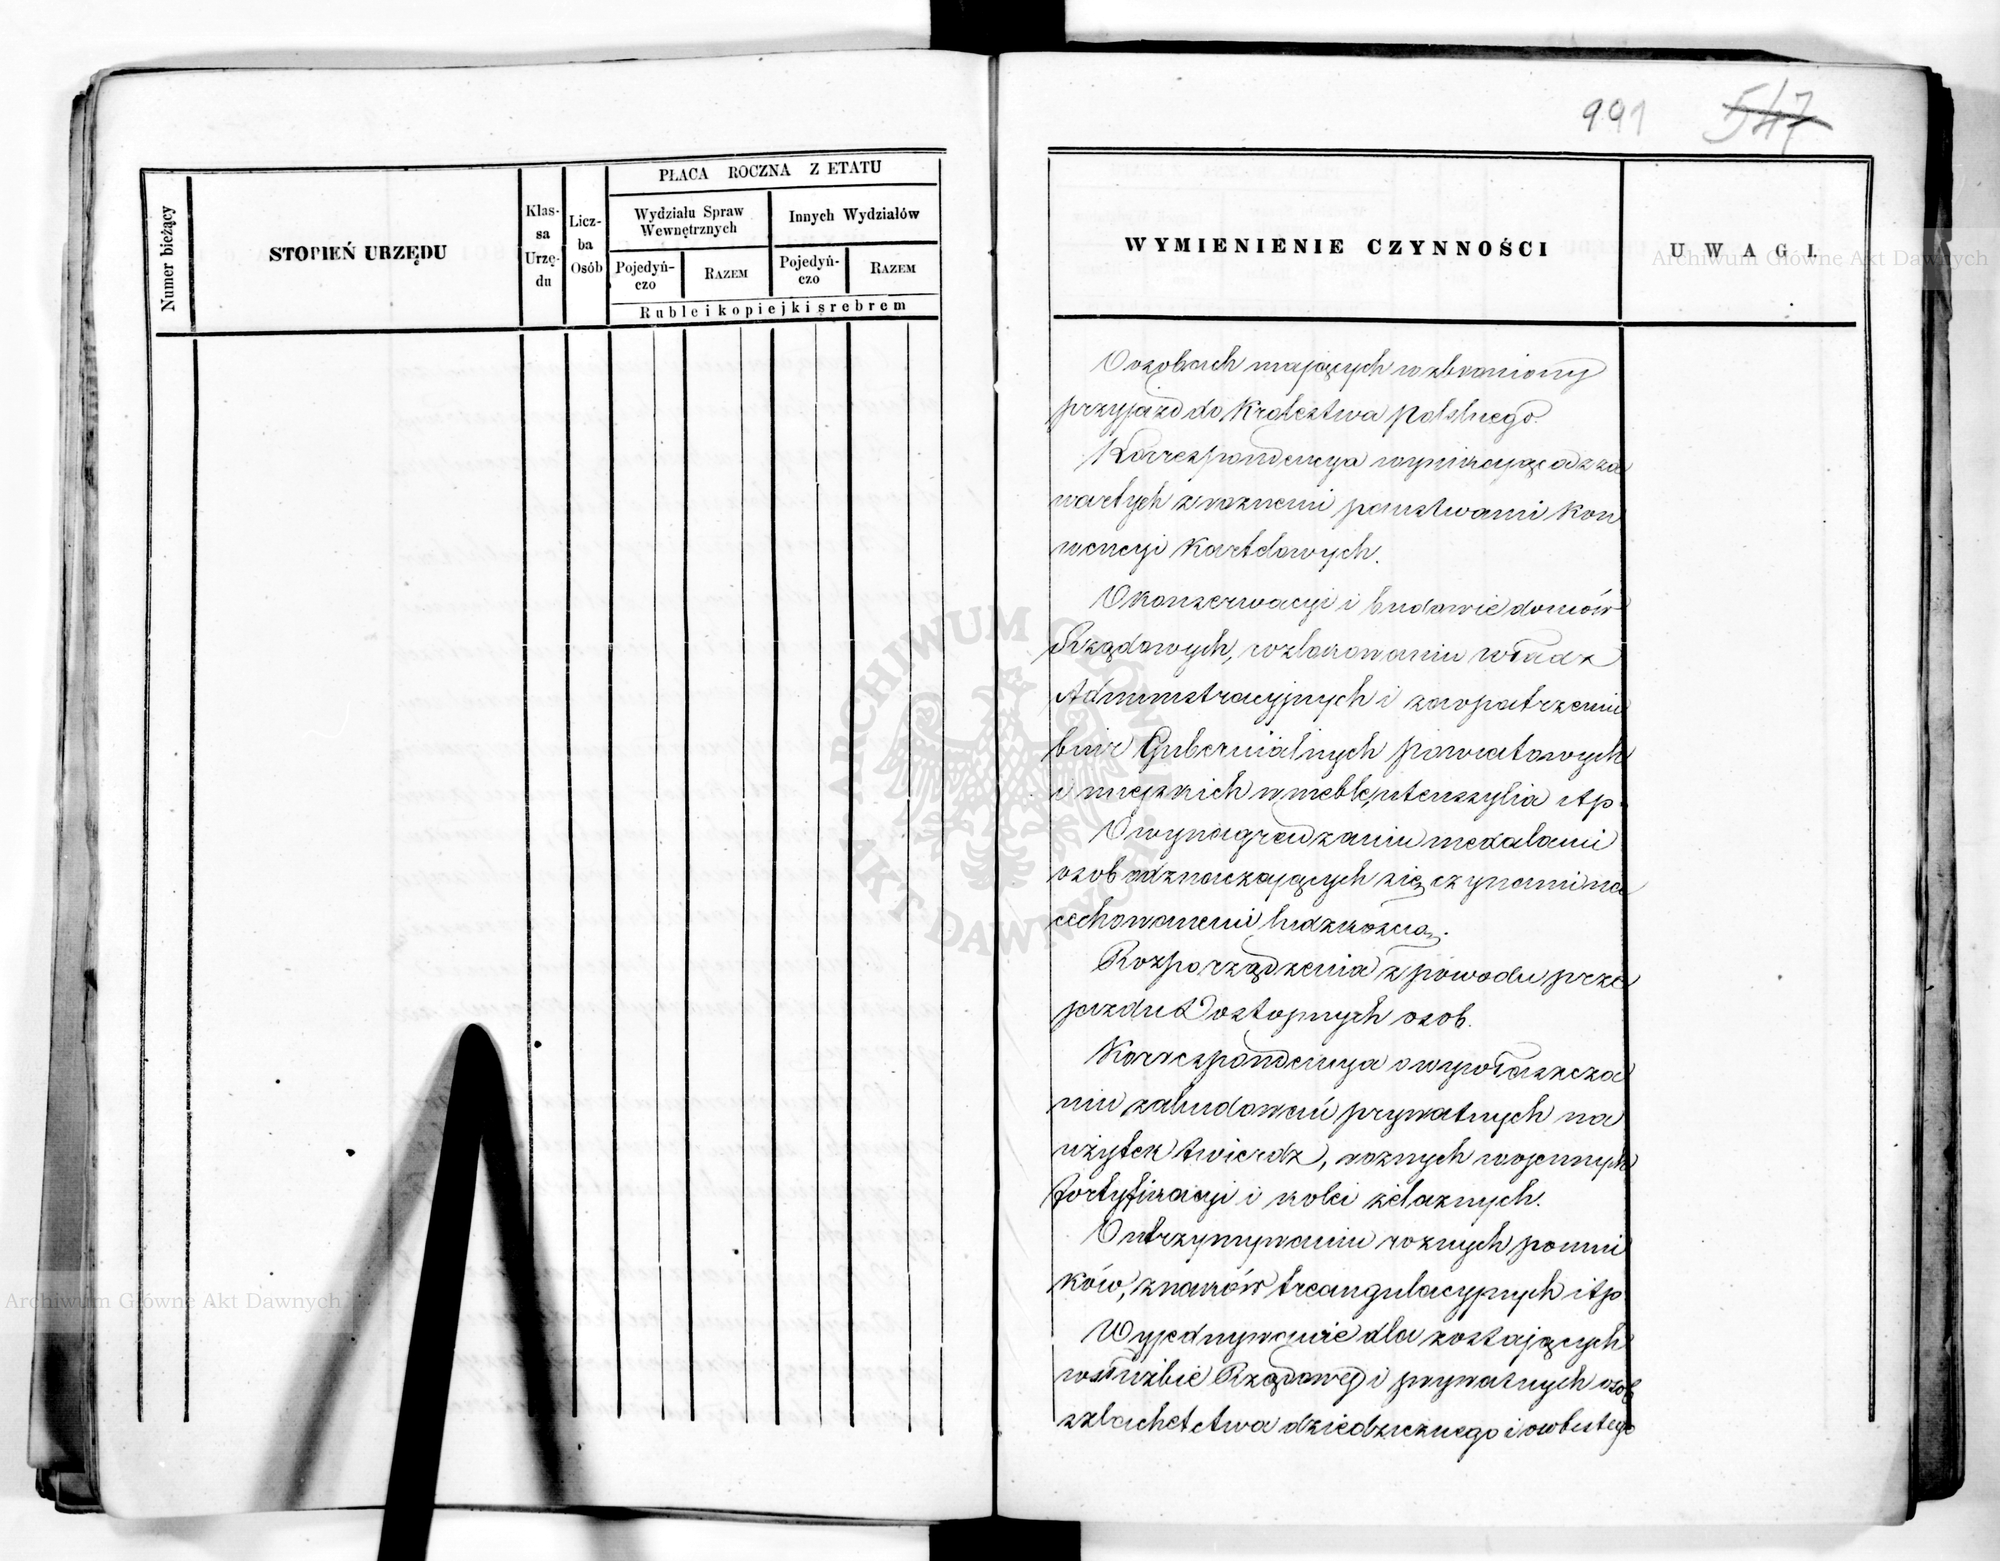 991 547
Numer bieżący
STOPIEŃ URZĘDU
Klas-
sa
Urzę-
du
Licz-
ba
Osób
PŁACA ROCZNA Z ETATU
Wydziału Spraw
Wewnętrznych
Innych Wydziałów
Pojedyń-
czo
RAZEM
Pojedyń-
czo
RAZEM
Ruble i kopiejki srebrem
WYMIENIENIE CZYNNOŚCI
UWAGI.
O osobach mających wzbroniony
przyjazd do Krolestwa Polskiego.
Korrespondencya wynikająca z za
wartych z roznemi panstwami Kon
wencyi Kartelowych.
O konserwacyi i budowie domów
Rządowych, rozlokowaniu władz
Administracyjnych i zaopatrzeniu
biur Gubernialnych Powiatowych
i miejskich w meble, utenszylia itp
O wynagradzaniu medalami
osob odznaczających się czynami na
cechowanemi ludzkością.
Rozporządzenia z powodu prze
jazdu Dostojnych osob.
Korrespondencya o wywłaszcza
niu zabudowań prywatnych na
użytek twierdz, roznych wojennych
fortyfikacyi i kolei żelaznych.
O utrzymywaniu roznych pomni
ków, znaków treangulacyjnych itp
Wyjednywanie dla zostających
w służbie Rządowej i prywatnych osob
szlachectwa dziedzicznego i osobistego
Archiwum Główne Akt Dawnych
Archiwum Główne Akt Dawnych
ARCHIWUM GŁÓWNE
AKT DAWNYCH